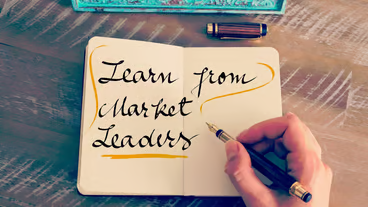 Learn from
Market
Leaders